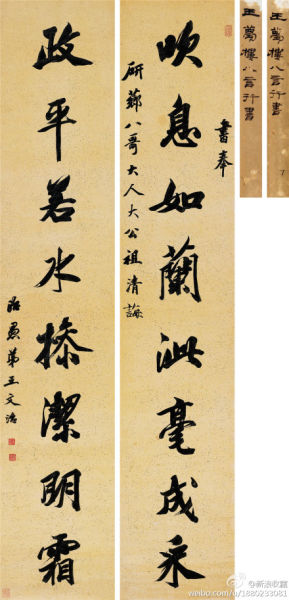 王夢樓八言行書
王夢樓八言行書
書奉
吹息如蘭泚毫成采
研薌八哥大人大公祖清誨
政平若水操潔明霜
治愚弟王文治
@新浪收藏
weibo.com/u/1880233081